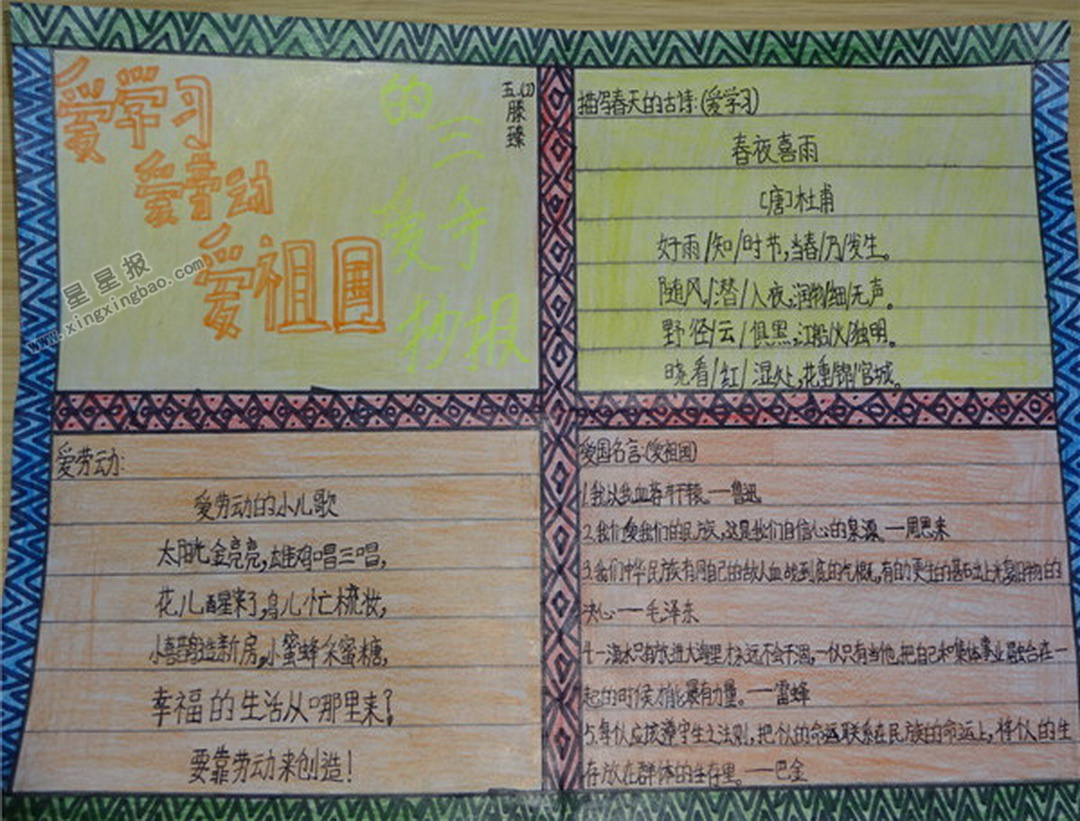 爱学习
爱劳动
爱祖国
的
三
爱手
抄报
五.(2)
滕
臻
星星报
www.xingxingbao.com
描写春天的古诗:(爱学习)
春夜喜雨
〔唐〕杜甫
好雨/知/时节,当春/乃/发生。
随风/潜/入夜,润物/细/无声。
野径/云/俱黑,江船/火/独明。
晓看/红/湿处,花重/锦/官城。
爱劳动:
爱劳动的小儿歌
太阳光金亮亮,雄鸡唱三唱,
花儿醒来了,鸟儿忙梳妆,
小喜鹊造新房,小蜜蜂采蜜糖,
幸福的生活从哪里来?
要靠劳动来创造!
爱国名言:(爱祖国)
1.我以我血荐轩辕。——鲁迅
2.我们爱我们的民族,这是我们自信心的泉源。——周恩来
3.我们中华民族有同自己的敌人血战到底的气概,有自力更生的基石出上光复旧物的
决心——毛泽东
4.一滴水只有放进大海里才永远不会干涸,一个人只有当他把自己和集体事业融合在一
起的时候才能最有力量。——雷锋
5.每个人应该遵守生之法则,把个人的命运联系在民族的命运上,将个人的生
存放在群体的生存里。——巴金